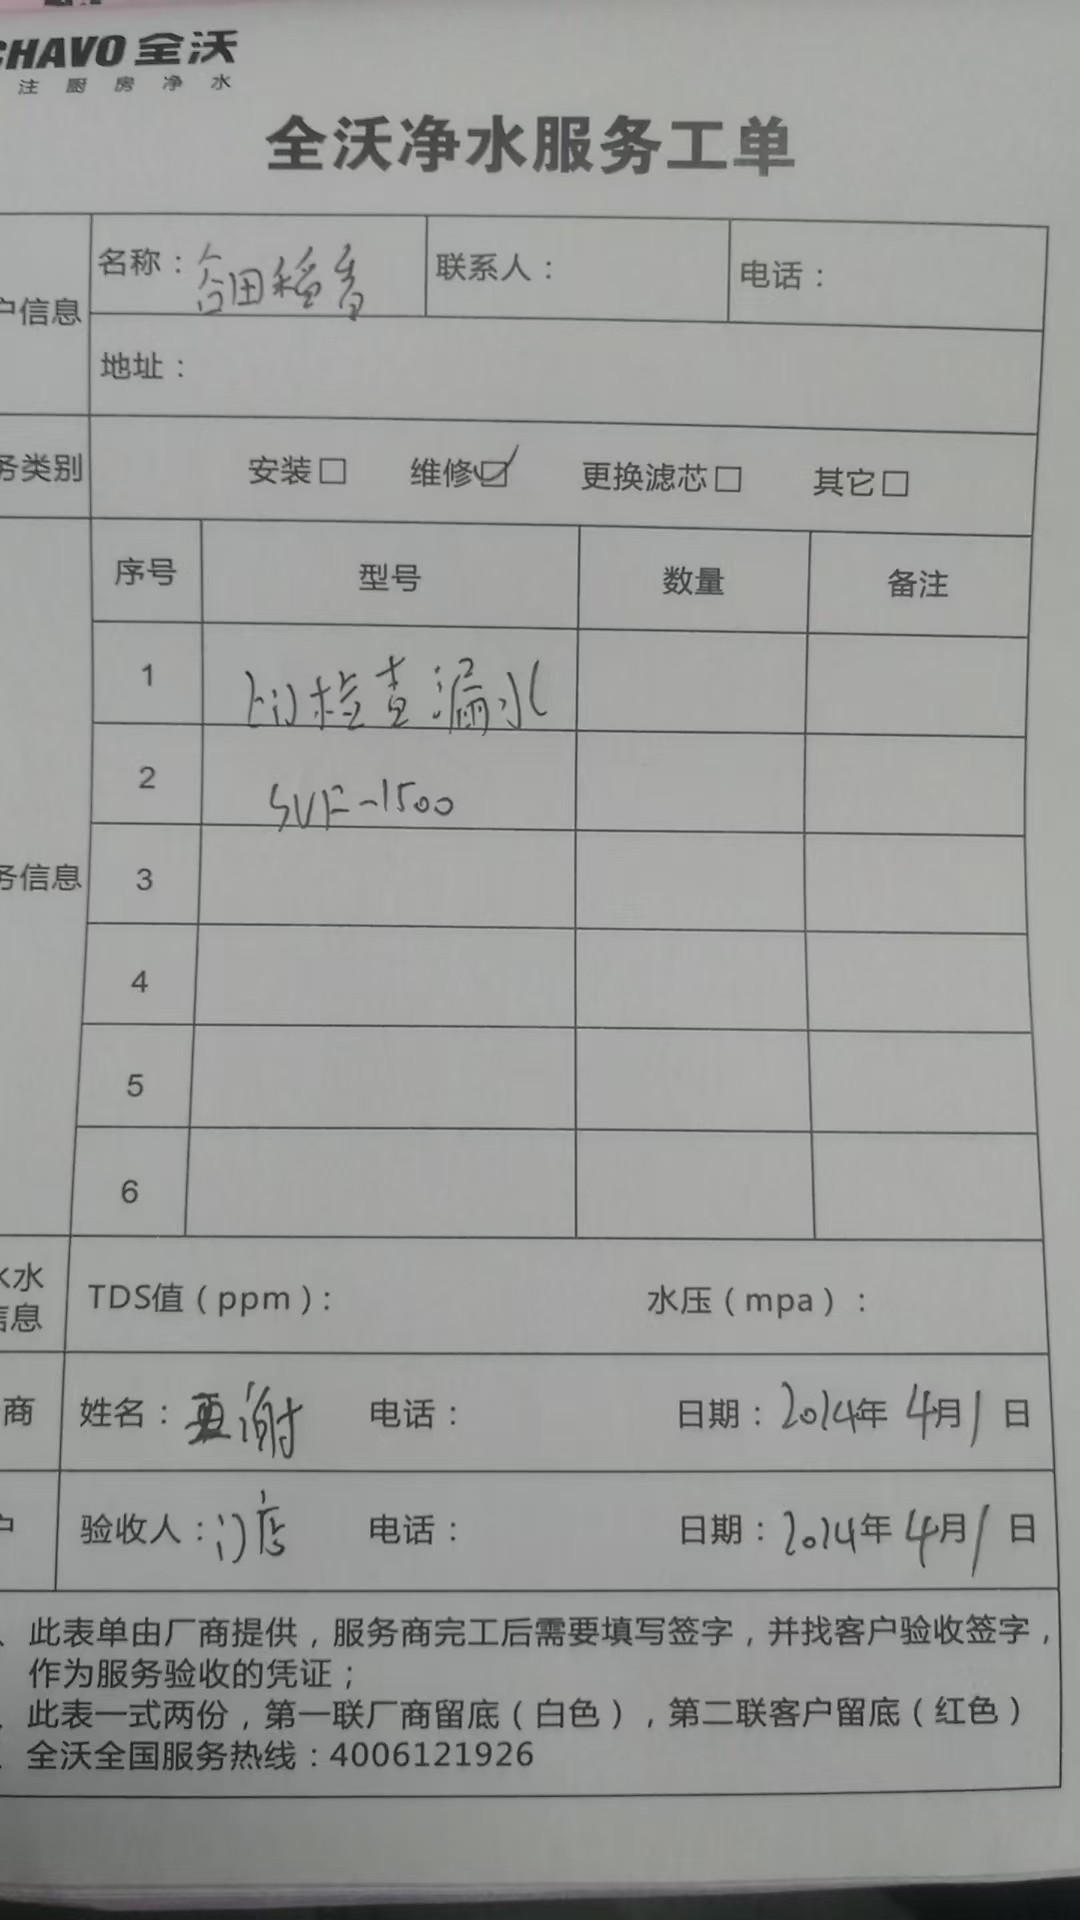 CHAVO 全沃
注厨房净水
全沃净水服务工单
户信息
名称：谷田稻香
联系人：
电话：
地址：
务类别
安装□ 维修☑ 更换滤芯□ 其它□
序号 型号 数量 备注
1 上门检查漏水
2 SUF-1500
务信息
3
4
5
6
水
信息
TDS值（ppm）：
水压（mpa）：
商
姓名：
电话：
日期：2024年4月1日
户
验收人：门店
电话：
日期：2024年4月1日
、此表单由厂商提供，服务商完工后需要填写签字，并找客户验收签字，
作为服务验收的凭证；
、此表一式两份，第一联厂商留底（白色），第二联客户留底（红色）
全沃全国服务热线：4006121926